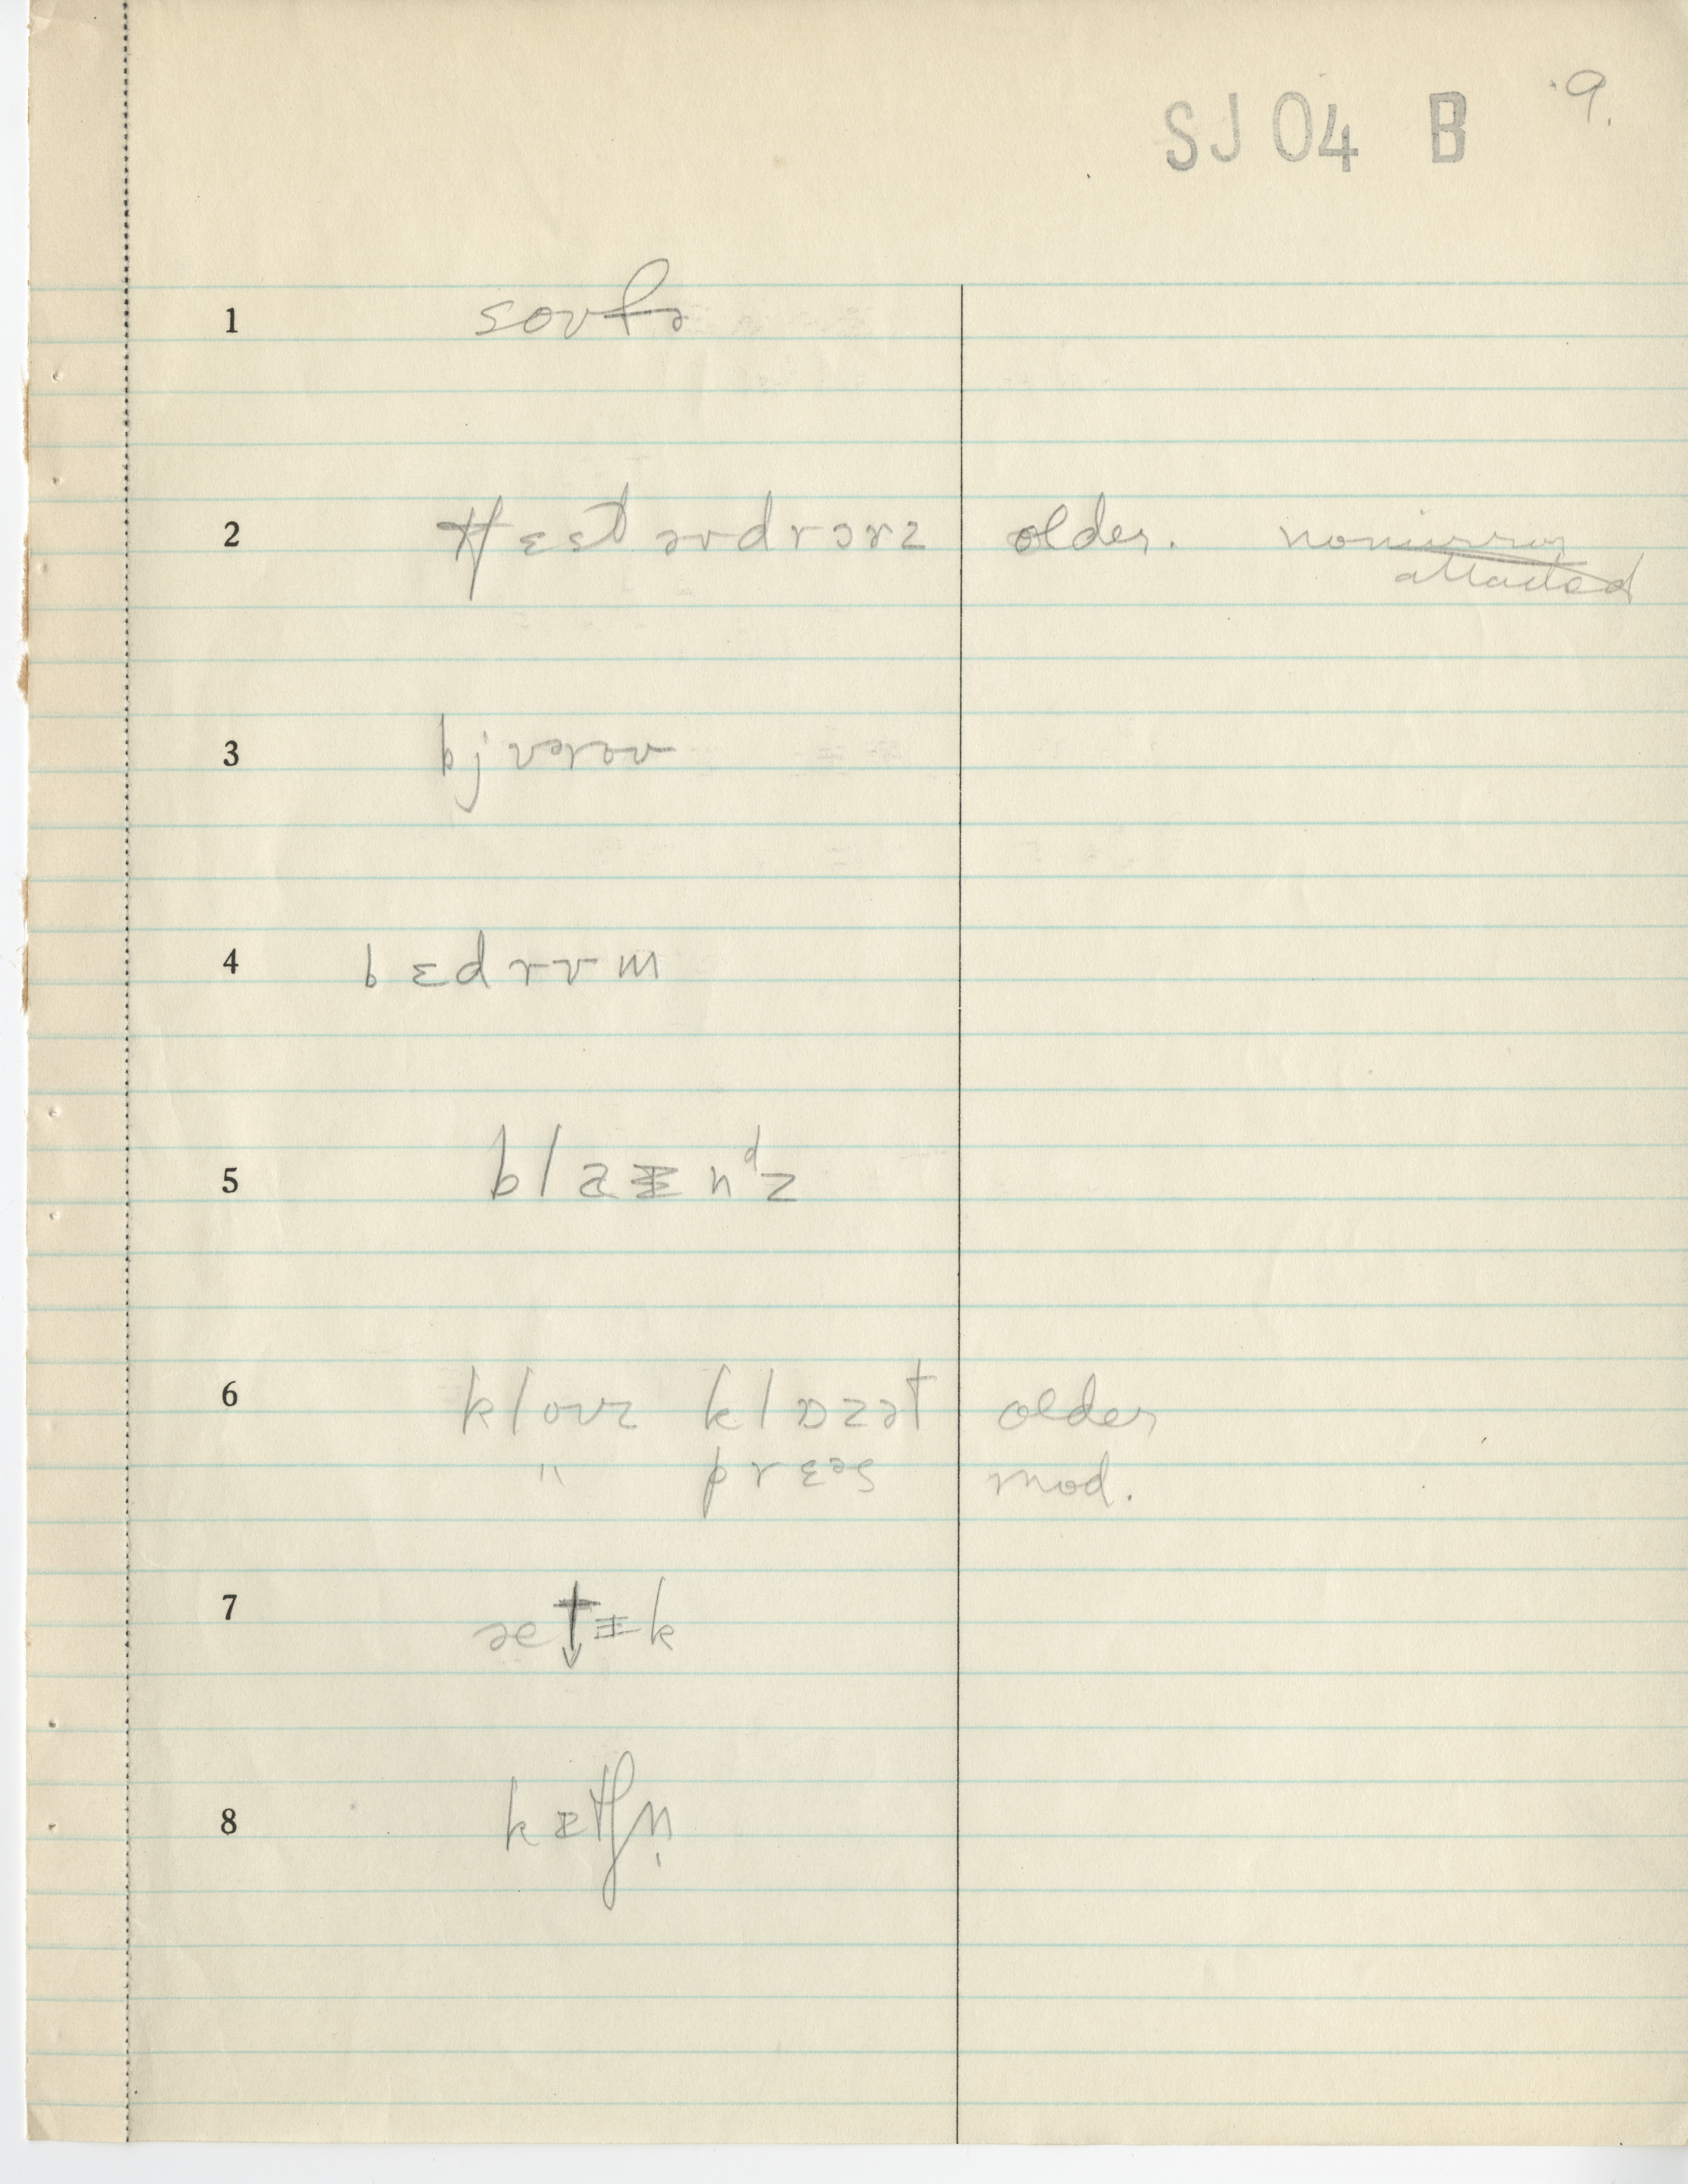 SJ 04 B 9.
1 soʊfə
2 tʃɛst əv drɔrz older. no mirror
attached
3 bjʊroʊ
4 bɛdrʊm
5 blaɪnᵈz
6 kloʊz klɒzət older
" prɛəs mod.
7 ætɪk
8 kɪtʃn̩